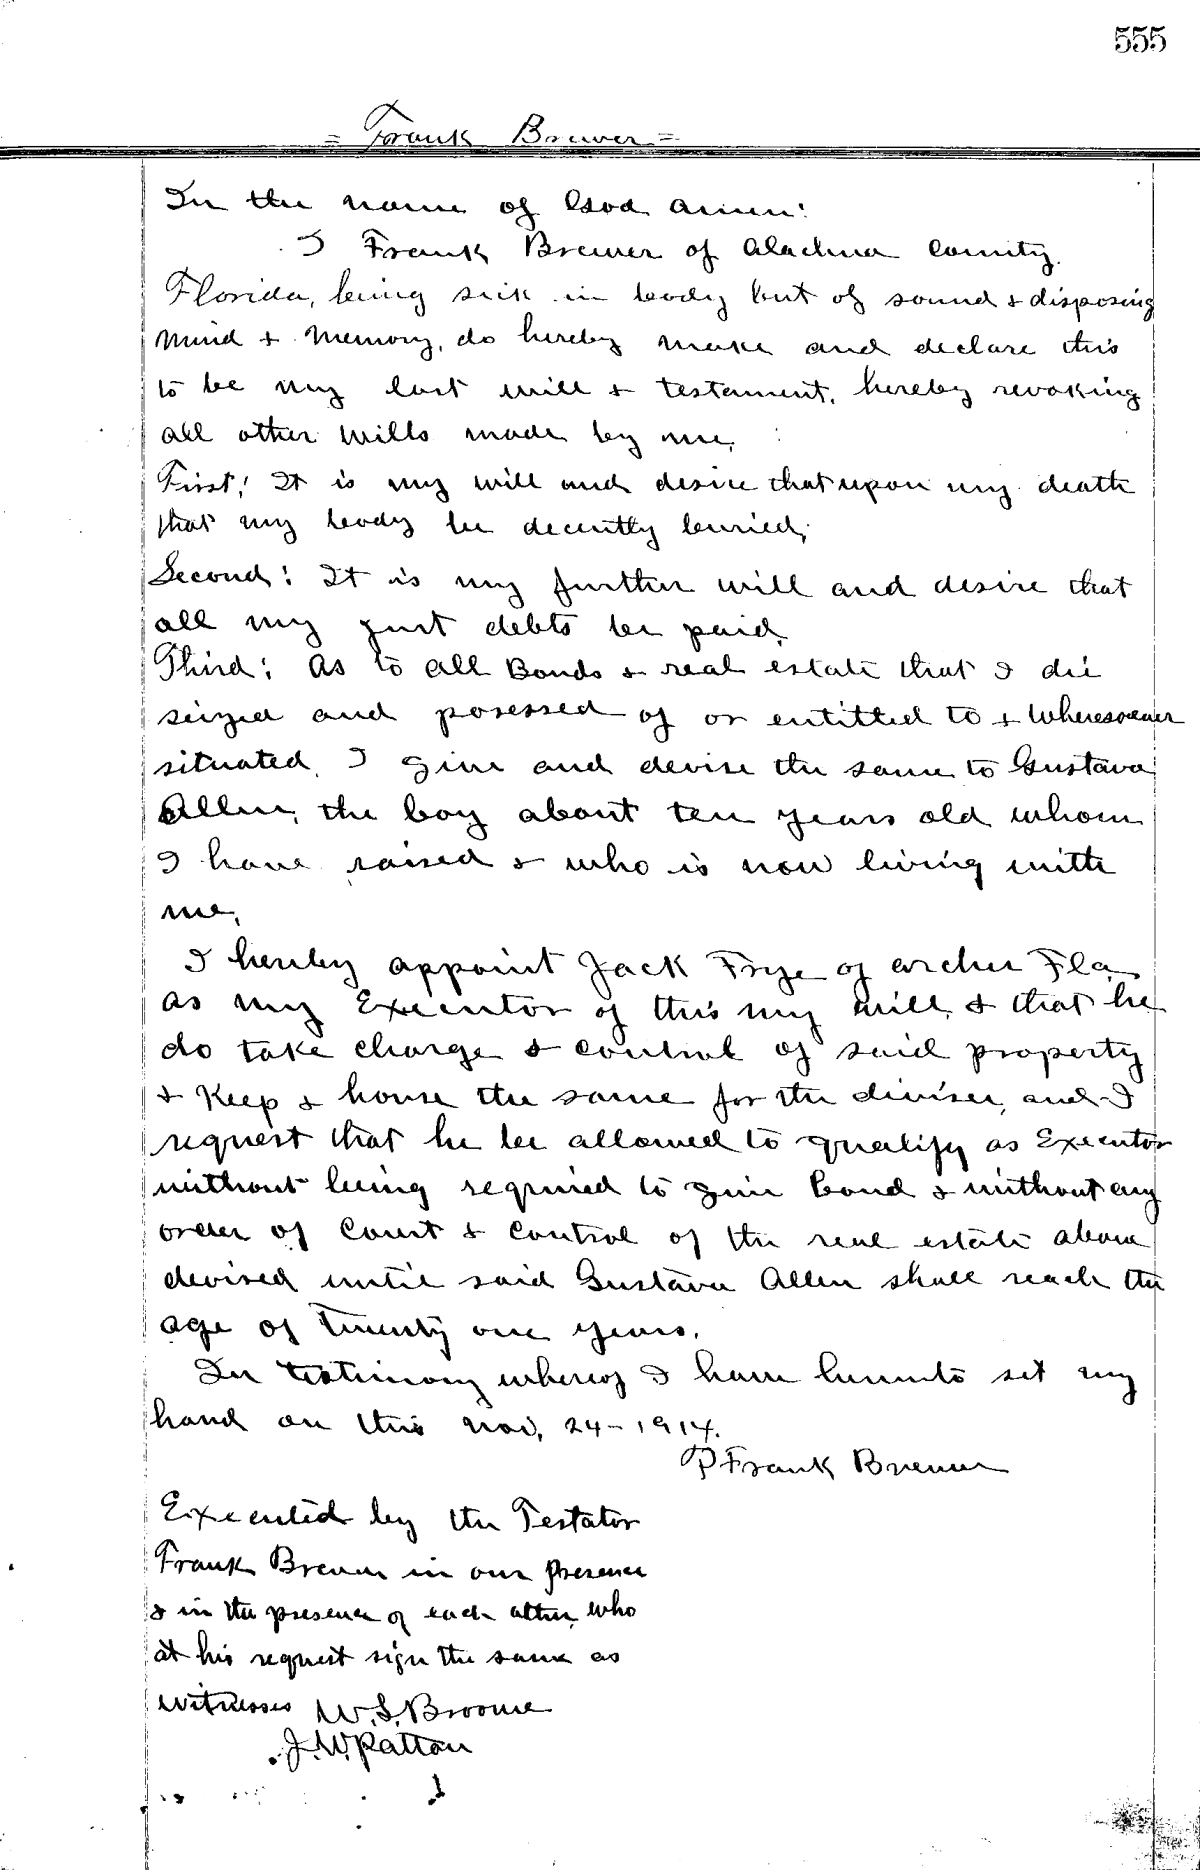 555
= Frank Brewer =
In the name of God amen:
I Frank Brewer of Alachua County.
Florida, being sick in body but of sound & disposing
mind & memory, do hereby make and declare this
to be my last will & testament, hereby revoking
all other wills made by me.
First: It is my will and desire that upon my death
that my body be decently buried;
Second: It is my further will and desire that
all my just debts be paid.
Third: As to all Bonds & real estate that I die
seized and posessed of or entitled to & wheresoever
situated, I give and devise the same to Gustava
Allen, the boy about ten years old whom
I have raised & who is now living with
me.
I hereby appoint Jack Frye of Archer Fla,
as my Executor of this my will, & that he
do take charge & control of said property
& Keep & house the same for the devisee, and I
request that he be allowed to qualify as Executor
without being required to give bond & without any
order of Court & control of the real estate above
devised until said Gustava Allen shall reach the
age of twenty one years.
In testimony whereof I have hereunto set my
hand on this Nov, 24-1914.
P Frank Brewer
Executed by the Testator
Frank Brewer in our presence
& in the presence of each other, who
at his request sign the same as
witnesses W. S. Broome
J. W. Patton